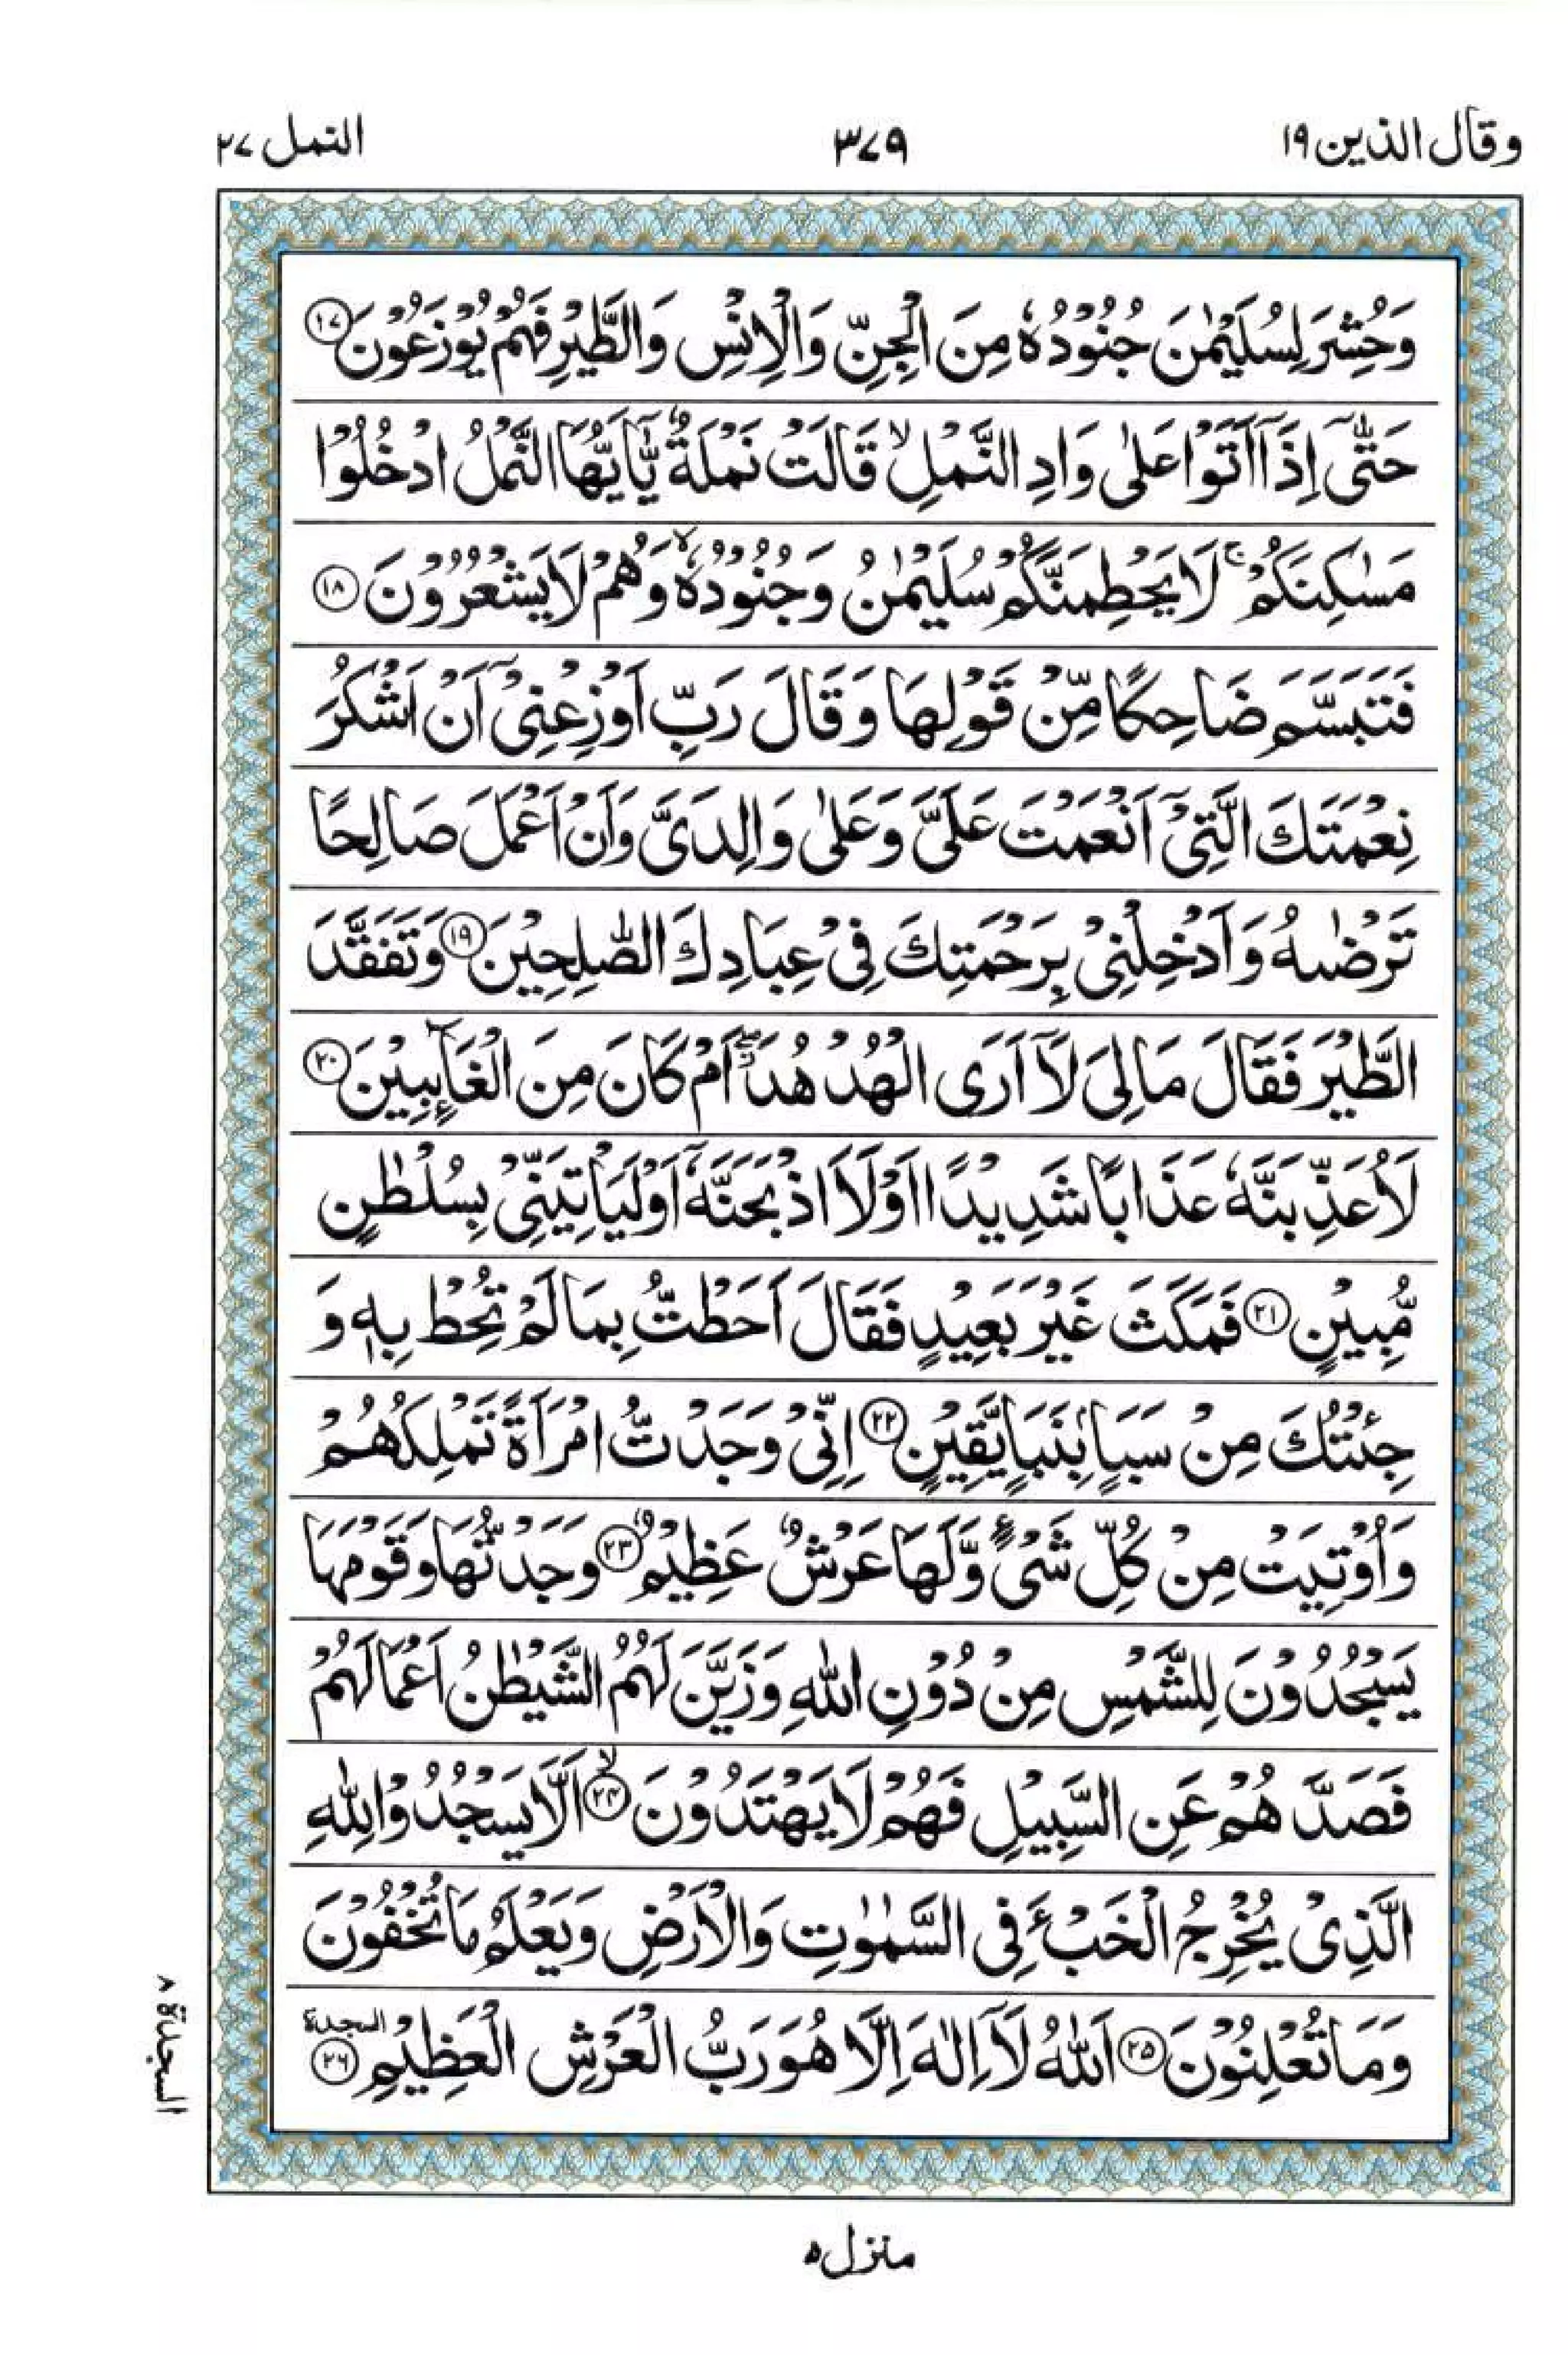 وقال الذين ١٩
٣٧٩
النمل ٢٧
وَحُشِرَ لِسُلَيْمٰنَ جُنُوْدُهٗ مِنَ الْجِنِّ وَالْاِنْسِ وَالطَّيْرِ فَهُمْ يُوْزَعُوْنَ ١٧
حَتّٰۤى اِذَاۤ اَتَوْا عَلٰى وَادِ النَّمْلِ ۙ قَالَتْ نَمْلَةٌ يّٰۤاَيُّهَا النَّمْلُ ادْخُلُوْا
مَسٰكِنَكُمْ ۚ لَا يَحْطِمَنَّكُمْ سُلَيْمٰنُ وَجُنُوْدُهٗ ۙ وَهُمْ لَا يَشْعُرُوْنَ ١٨
فَتَبَسَّمَ ضَاحِكًا مِّنْ قَوْلِهَا وَقَالَ رَبِّ اَوْزِعْنِىْۤ اَنْ اَشْكُرَ
نِعْمَتَكَ الَّتِىْۤ اَنْعَمْتَ عَلَىَّ وَعَلٰى وَالِدَىَّ وَاَنْ اَعْمَلَ صَالِحًا
تَرْضٰىهُ وَاَدْخِلْنِىْ بِرَحْمَتِكَ فِىْ عِبَادِكَ الصّٰلِحِيْنَ ١٩ وَتَفَقَّدَ
الطَّيْرَ فَقَالَ مَا لِىَ لَاۤ اَرَى الْهُدْهُدَ ۖ اَمْ كَانَ مِنَ الْغَآئِبِيْنَ ٢٠
لَاُعَذِّبَنَّهٗ عَذَابًا شَدِيْدًا اَوْ لَا۟اَذْبَحَنَّهٗۤ اَوْ لَيَاْتِيَنِّىْ بِسُلْطٰنٍ
مُّبِيْنٍ ٢١ فَمَكَثَ غَيْرَ بَعِيْدٍ فَقَالَ اَحَطْتُّ بِمَا لَمْ تُحِطْ بِهٖ وَ
جِئْتُكَ مِنْ سَبَاٍۭ بِنَبَاٍ يَّقِيْنٍ ٢٢ اِنِّىْ وَجَدْتُّ امْرَاَةً تَمْلِكُهُمْ
وَاُوْتِيَتْ مِنْ كُلِّ شَىْءٍ وَّلَهَا عَرْشٌ عَظِيْمٌ ٢٣ وَجَدْتُّهَا وَقَوْمَهَا
يَسْجُدُوْنَ لِلشَّمْسِ مِنْ دُوْنِ اللّٰهِ وَزَيَّنَ لَهُمُ الشَّيْطٰنُ اَعْمَالَهُمْ
فَصَدَّهُمْ عَنِ السَّبِيْلِ فَهُمْ لَا يَهْتَدُوْنَ ۙ ٢٤ اَلَّا يَسْجُدُوْا لِلّٰهِ
الَّذِىْ يُخْرِجُ الْخَبْءَ فِى السَّمٰوٰتِ وَالْاَرْضِ وَيَعْلَمُ مَا تُخْفُوْنَ
وَمَا تُعْلِنُوْنَ ٢٥ اَللّٰهُ لَاۤ اِلٰهَ اِلَّا هُوَ رَبُّ الْعَرْشِ الْعَظِيْمِ ٢٦ السجدة
السجدة ٨
منزل ٥